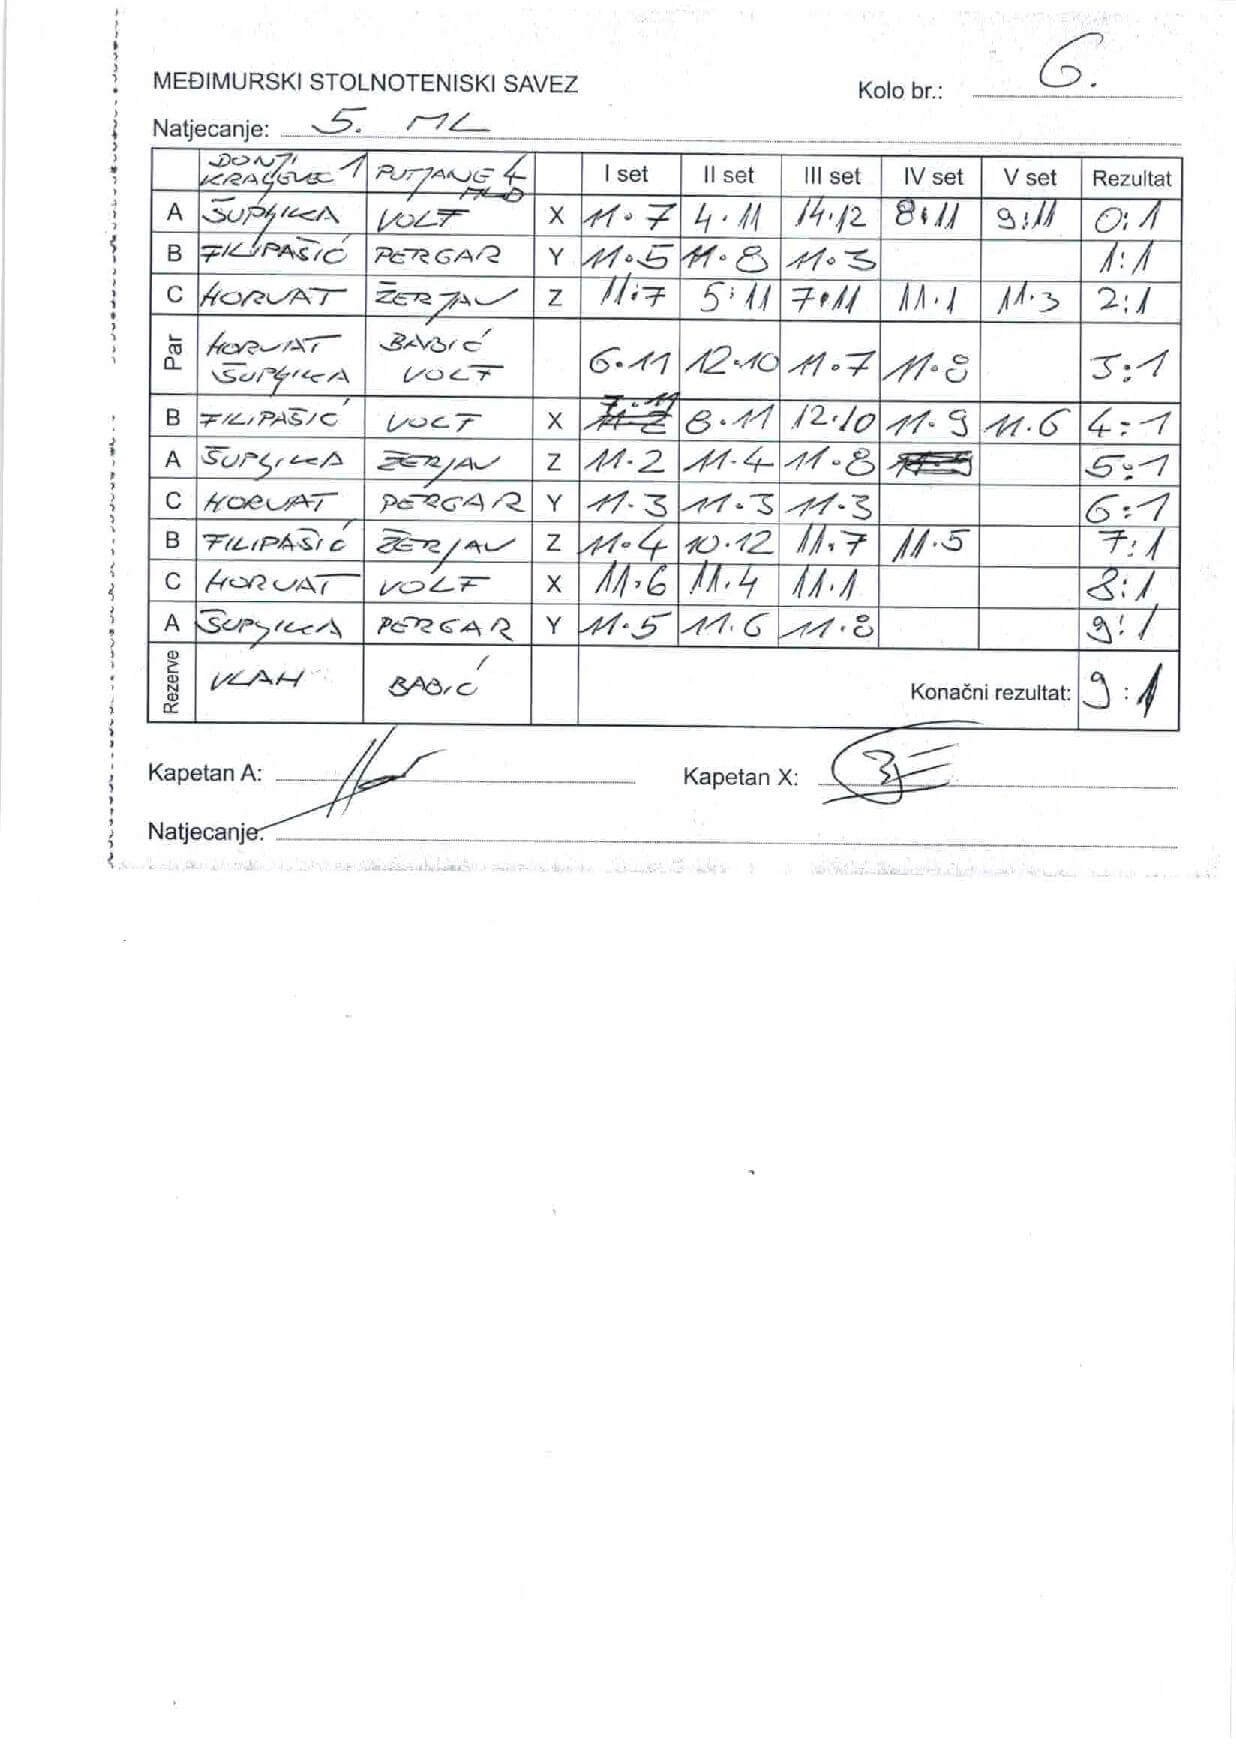 MEĐIMURSKI STOLNOTENISKI SAVEZ
Kolo br.: 6.
Natjecanje: 5. ML
DONJI KRALJEVEC 1 PUTJANE 4 I set II set III set IV set V set Rezultat
A ŠUPLJIKA VOLF X 11·7 4·11 14·12 8:11 9:11 0:1
B FILIPAŠIĆ PERGAR Y 11·5 11·8 11·3 1:1
C HORVAT ŽERJAV Z 11:7 5:11 7:11 11·1 11·3 2:1
Par HORVAT BABIĆ 6·11 12·10 11·7 11·8 3:1
ŠUPLJIKA VOLF
B FILIPAŠIĆ VOLF X 7·11 8·11 12·10 11·9 11·6 4:1
A ŠUPLJIKA ŽERJAV Z 11·2 11·4 11·8 5:1
C HORVAT PERGAR Y 11·3 11·3 11·3 6:1
B FILIPAŠIĆ ŽERJAV Z 11·4 10·12 11·7 11·5 7:1
C HORVAT VOLF X 11·6 11·4 11·1 8:1
A ŠUPLJIKA PERGAR Y 11·5 11·6 11·8 9:1
Rezerve VLAH BABIĆ Konačni rezultat: 9:1
Kapetan A: Kapetan X:
Natjecanje: